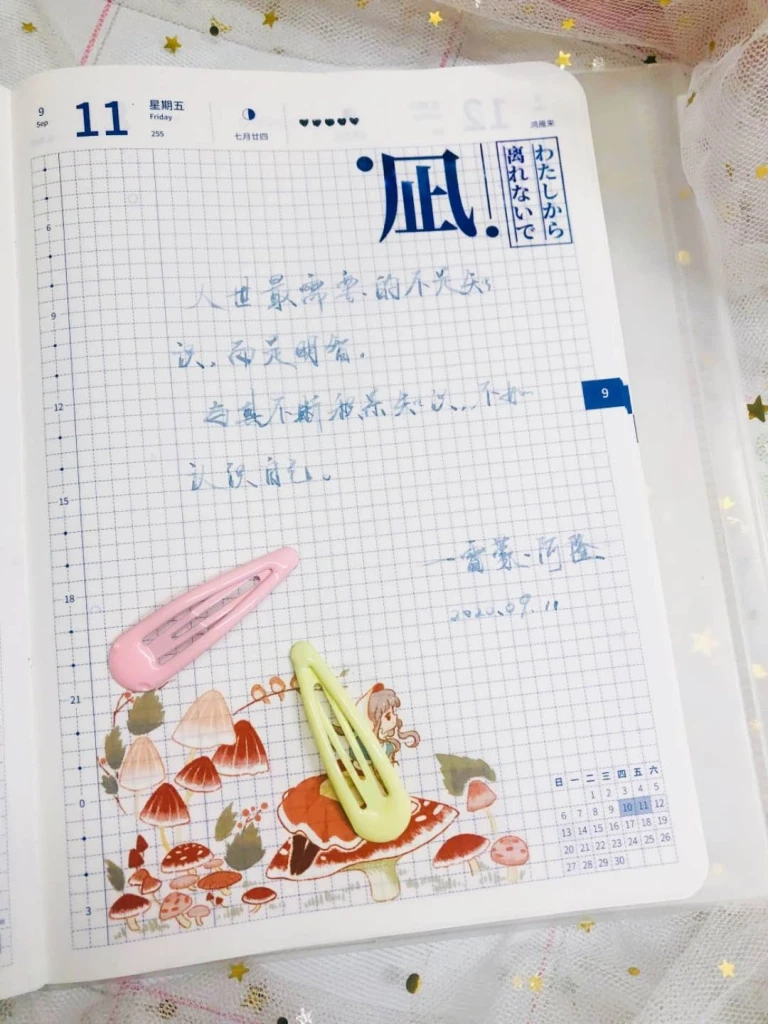 9
Sep
11
星期五
Friday
255
七月廿四
鸿雁来
凪
わたしから
离れないで
人世最需要的不是知
识,而是明智。
与其不断积累知识,不如
认识自己。
—雷蒙·阿隆
2020.09.11
6
9
12
15
18
21
0
3
9
日 一 二 三 四 五 六
1 2 3 4 5
6 7 8 9 10 11 12
13 14 15 16 17 18 19
20 21 22 23 24 25 26
27 28 29 30